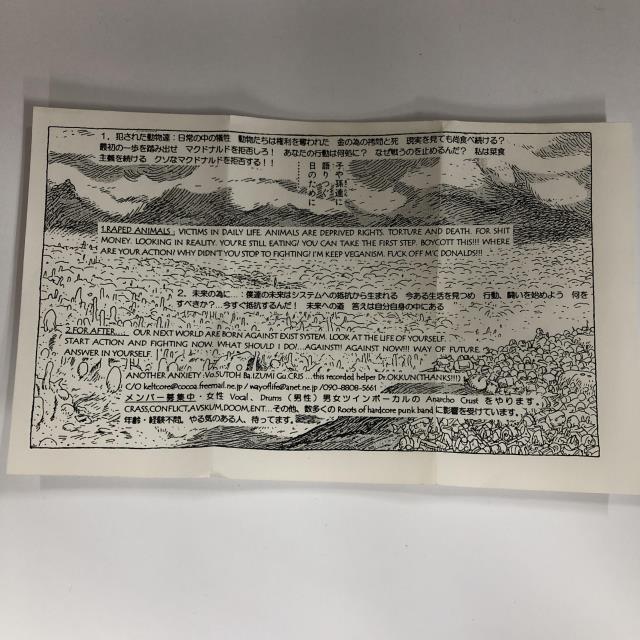 1．犯された動物達：日常の中の犠牲 動物たちは権利を奪われた 金の為の拷問と死 現実を見ても尚食べ続ける？
最初の一歩を踏み出せ マクドナルドを拒否しろ！ あなたの行動は何処に？ なぜ戦うのを止めるんだ？ 私は菜食
主義を続ける クソなマクドナルドを拒否する！！
子や孫達に
語りつぐ
日のために
1.RAPED ANIMALS ; VICTIMS IN DAILY LIFE. ANIMALS ARE DEPRIVED RIGHTS. TORTURE AND DEATH. FOR SHIT
MONEY. LOOKING IN REALITY. YOU'RE STILL EATING? YOU CAN TAKE THE FIRST STEP. BOYCOTT THIS!!! WHERE
ARE YOUR ACTION? WHY DIDN'T YOU STOP TO FIGHTING? I'M KEEP VEGANISM. FUCK OFF M'C DONALDS!!!
2．未来の為に 僕達の未来はシステムへの抵抗から生まれる 今ある生活を見つめ 行動、闘いを始めよう 何を
すべきか？…今すぐ抵抗するんだ！ 未来への道 答えは自分自身の中にある
2.FOR AFTER...... OUR NEXT WORLD ARE BORN AGAINST EXIST SYSTEM. LOOK AT THE LIFE OF YOURSELF.
START ACTION AND FIGHTING NOW. WHAT SHOULD I DO?...AGAINST!! AGAINST NOW!!! WAY OF FUTURE.
ANSWER IN YOURSELF.
ANOTHER ANXIETY :Vo.SUTOH Ba.IZUMI Gu.CRIS ...this recorded helper Dr.OKKUN(THANKS!!!)
C/O keltcore@cocoa.freemail.ne.jp / wayoflife@anet.ne.jp /090-8808-5661
メンバー募集中・女性 Vocal、Drums（男性）男女ツインボーカルの Anarcho Crust をやります。
CRASS,CONFLICT,AVSKUM,DOOM,ENT…その他、数多くの Roots of hardcore punk band に影響を受けています。
年齢・経験不問。やる気のある人、待ってます。